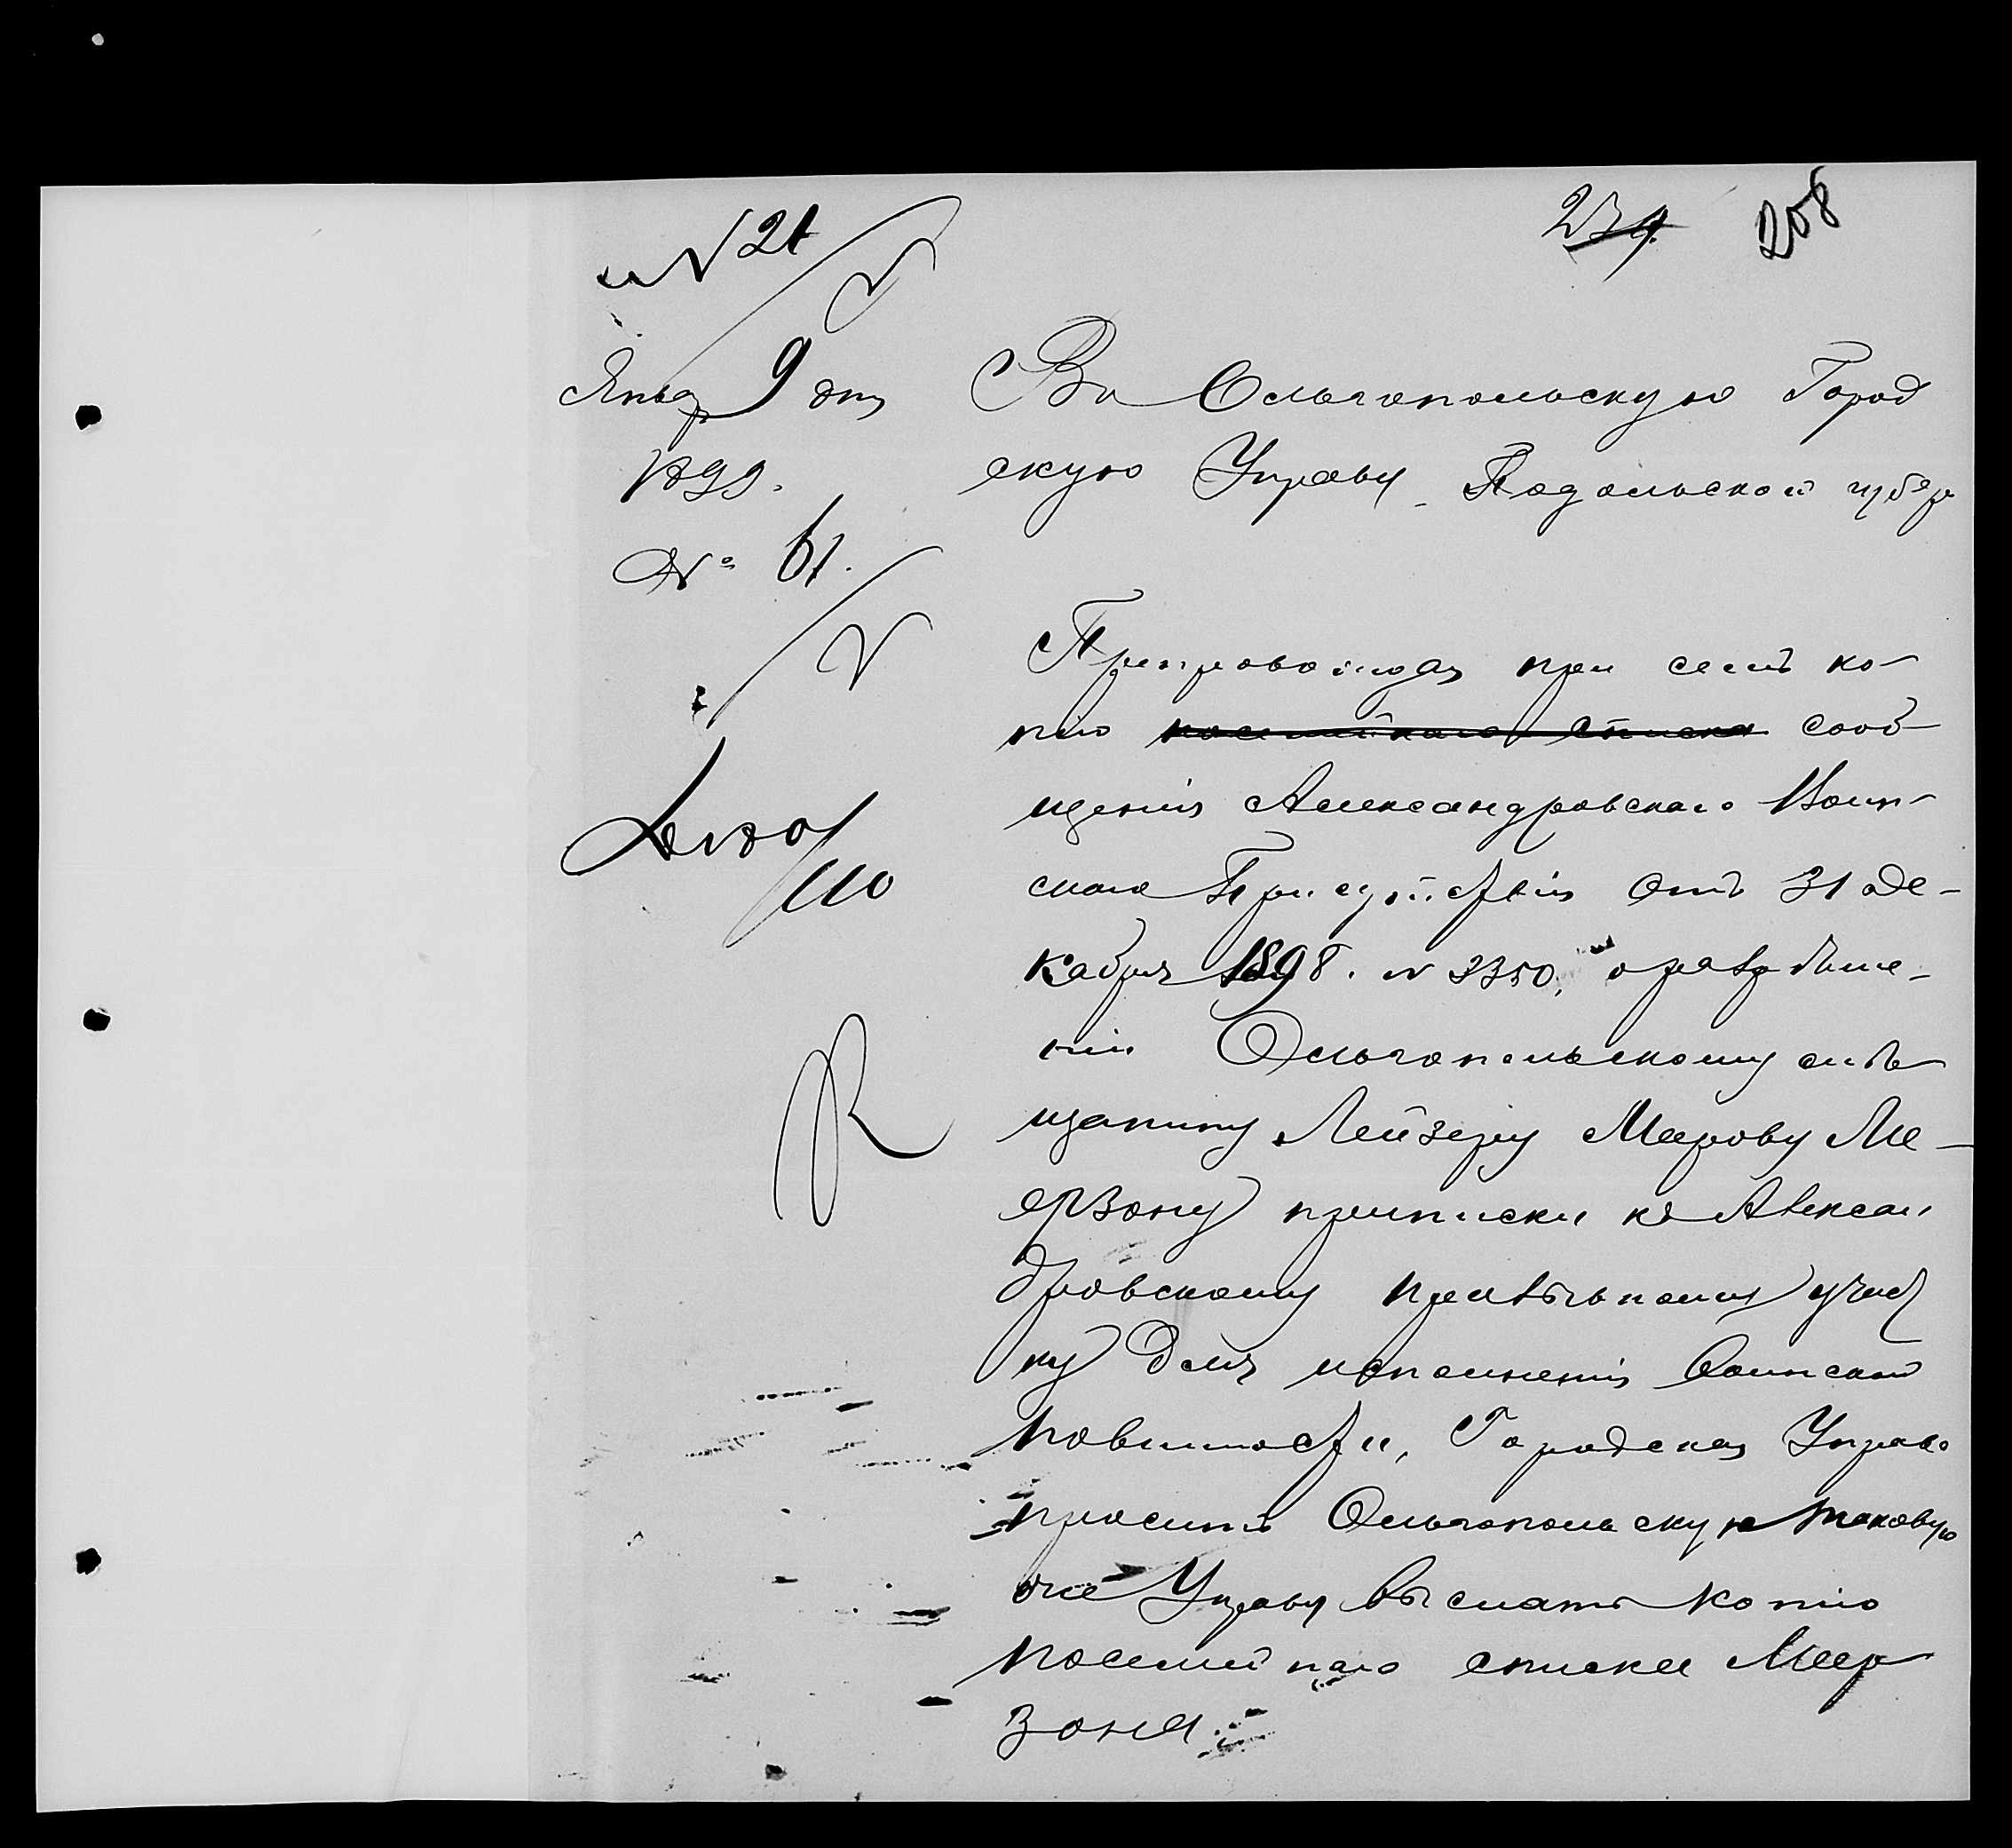 N 21
234. 208
Январ 9 дня
1899.
№ 61.
Въ Ольгопольскую Город
скую Управу Подольской губер
Препровождая при семъ ко-
пію посемейнаго списка сооб
щенія Александровскаго Воин-
скаго Присутствія отъ 31 де-
кабря 1898. N 3350, о разрѣше-
ніи Ольгопольскому мѣ
щанину Лейзеру Меерову Ме-
ерзону приписки къ Алексан
дровскому призывному учас
ку для исполненія воинской
повинности, Городская Управа
проситъ Ольгопольскую таковую
же Управу выслать копію
посемейнаго списка Меер
зона.